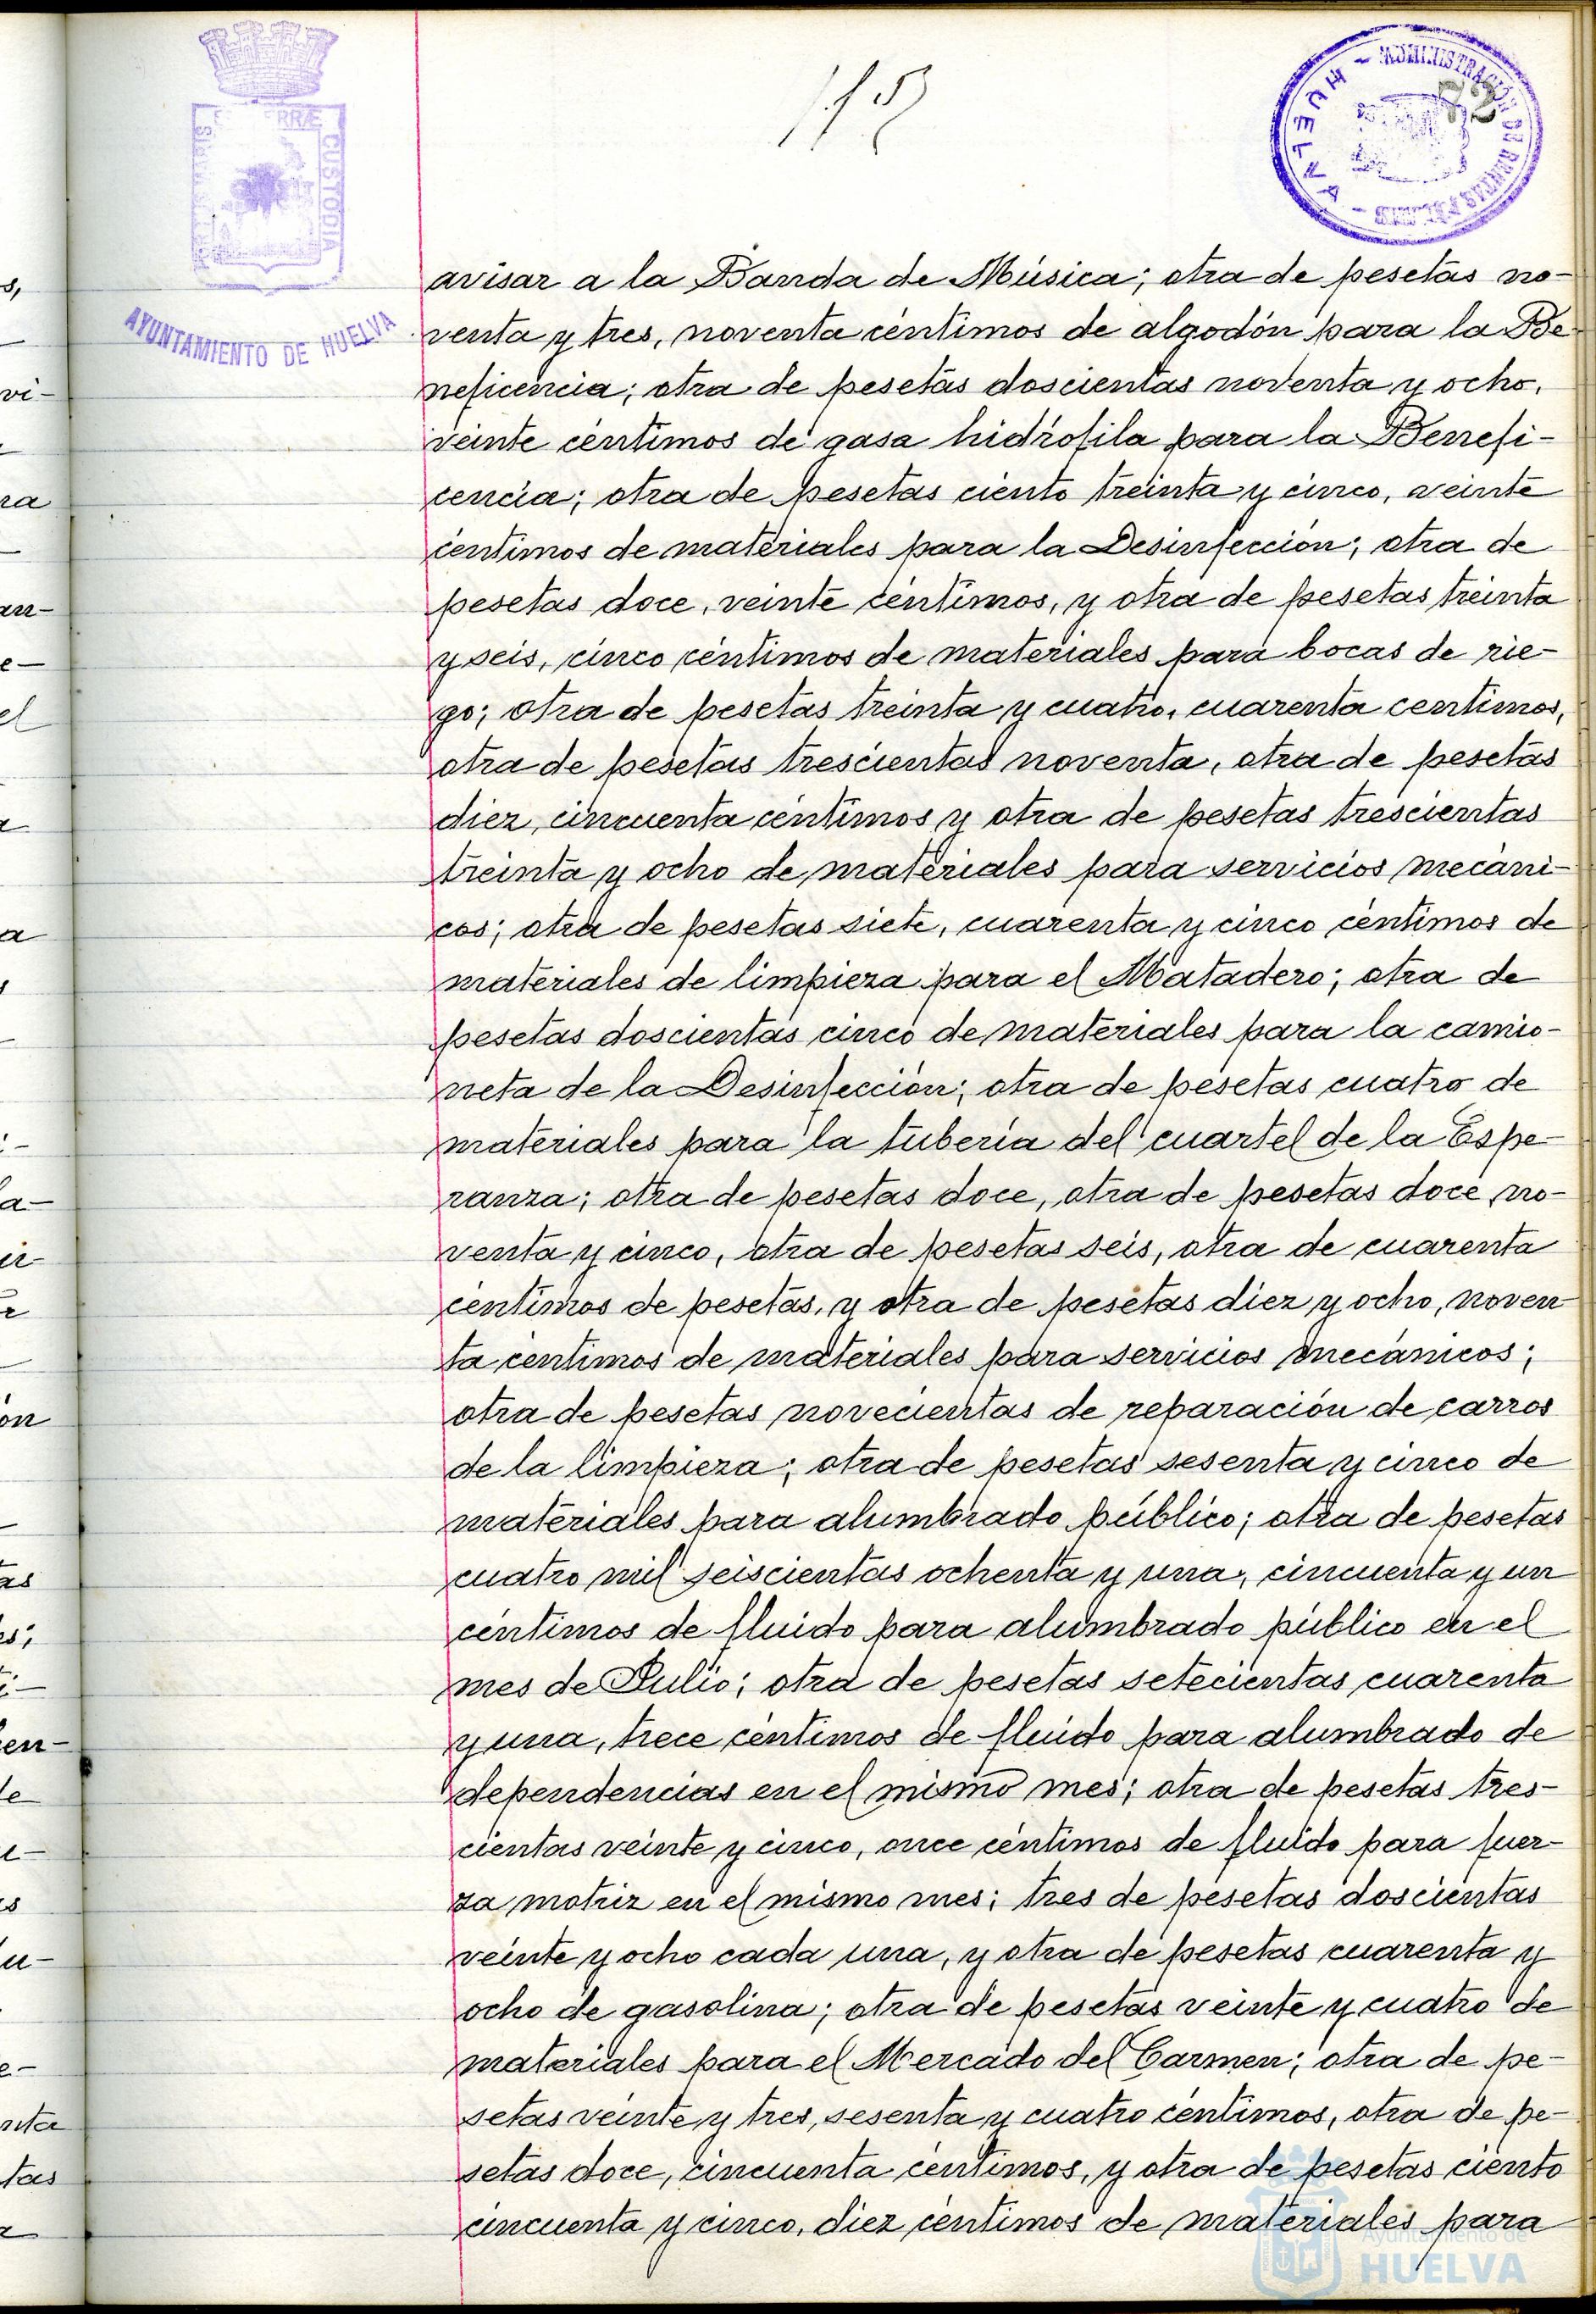 73
HUELVA - ADMINISTRACIÓN DE RENTAS
CUSTODIA
AYUNTAMIENTO DE HUELVA
avisar a la Banda de Música; otra de pesetas no-
venta y tres, noventa céntimos de algodón para la Be
neficencia; otra de pesetas doscientas noventa y ocho,
veinte céntimos de gasa hidrófila para la Benefi-
cencia; otra de pesetas ciento treinta y cinco, veinte
céntimos de materiales para la Desinfección; otra de
pesetas doce, veinte céntimos, y otra de pesetas treinta
y seis, cinco céntimos de materiales para bocas de rie-
go; otra de pesetas treinta y cuatro, cuarenta centimos,
otra de pesetas trescientas noventa, otra de pesetas
diez, cincuenta céntimos y otra de pesetas trescientas
treinta y ocho de materiales para servicios mecáni-
cos; otra de pesetas siete, cuarenta y cinco céntimos de
materiales de limpieza para el Matadero; otra de
pesetas doscientas cinco de materiales para la camio-
neta de la Desinfección; otra de pesetas cuatro de
materiales para la tubería del cuartel de la Espe-
ranza; otra de pesetas doce, otra de pesetas doce, no-
venta y cinco, otra de pesetas seis, otra de cuarenta
céntimos de pesetas, y otra de pesetas diez y ocho, noven
ta céntimos de materiales para servicios mecánicos;
otra de pesetas novecientas de reparación de carros
de la limpieza; otra de pesetas sesenta y cinco de
materiales para alumbrado público; otra de pesetas
cuatro mil seiscientas ochenta y una, cincuenta y un
céntimos de fluido para alumbrado público en el
mes de Julio; otra de pesetas setecientas cuarenta
y una, trece céntimos de fluido para alumbrado de
dependencias en el mismo mes; otra de pesetas tres-
cientas veinte y cinco, once céntimos de fluido para fuer-
za motriz en el mismo mes; tres de pesetas doscientas
veinte y ocho cada una, y otra de pesetas cuarenta y
ocho de gasolina; otra de pesetas veinte y cuatro de
materiales para el Mercado del Carmen; otra de pe-
setas veinte y tres, sesenta y cuatro céntimos, otra de pe-
setas doce, cincuenta céntimos, y otra de pesetas ciento
cincuenta y cinco, diez céntimos de materiales para
Ayuntamiento de
HUELVA